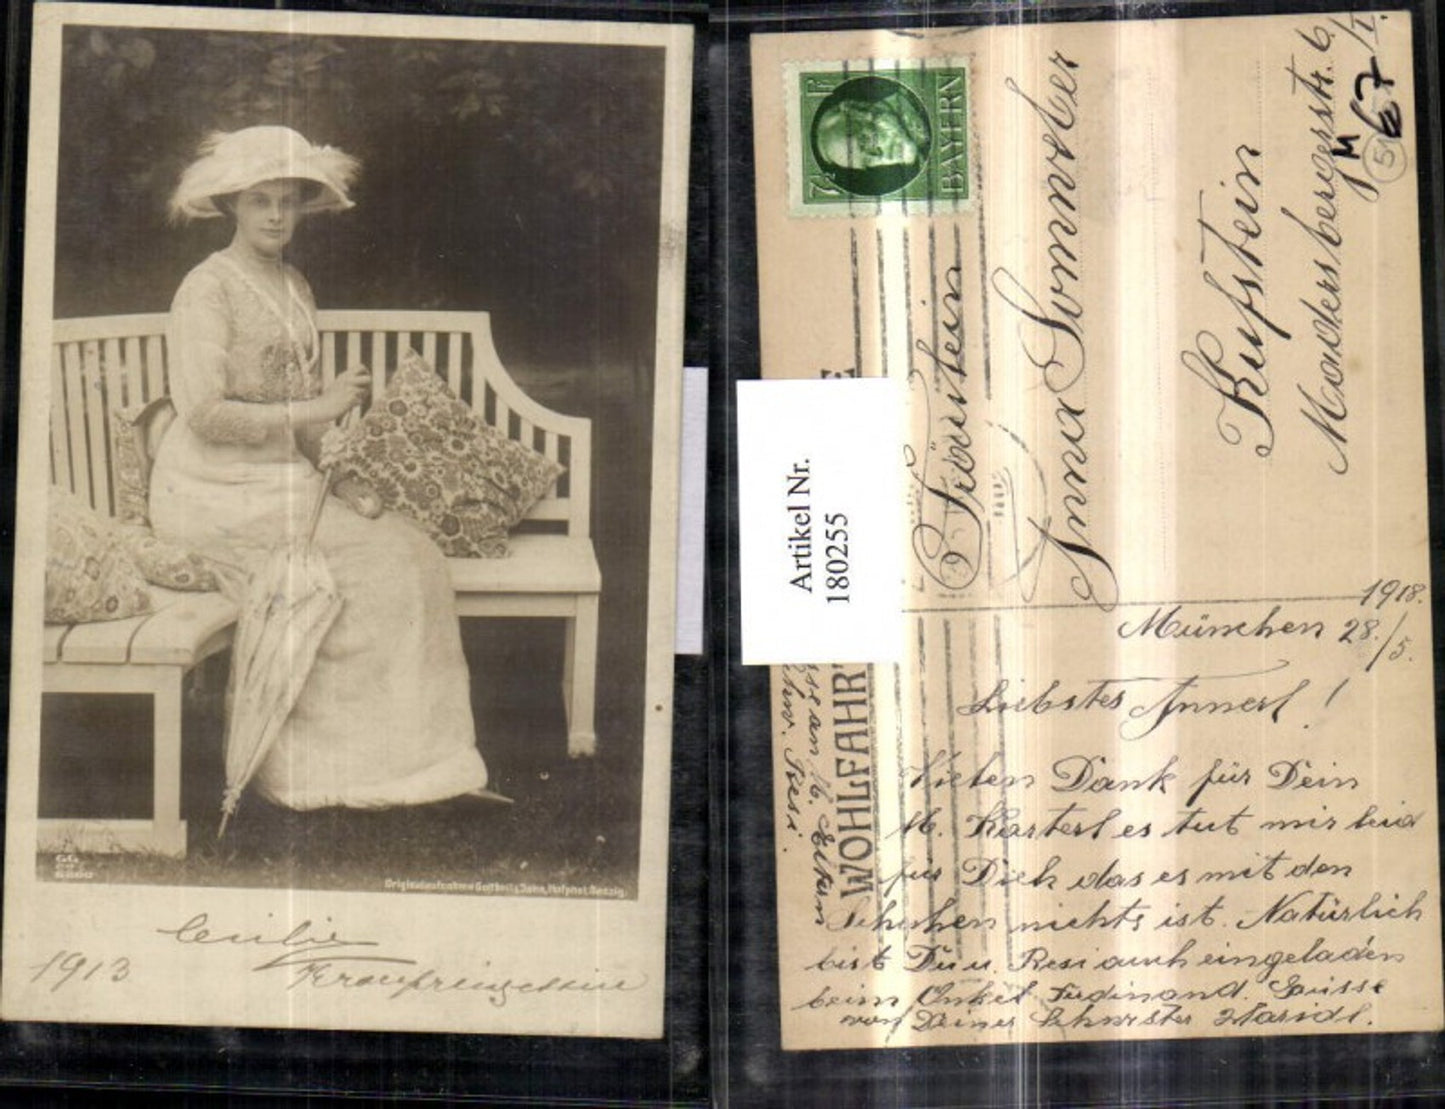 GG
Originalaufnahme Gottheil & Sohn, Hofphot. Danzig.
Cecilie
1913 Kronprinzessin
BAYERN
7½
Pf
Artikel Nr.
180255
WOHLFAHRT
Fräulein
Anna Sommeter
Kufstein
Madersbergerstr. 6/I.
M
67
5
1918.
München 28./5.
Liebstes Annerl!
Vielen Dank für Dein
lb. Karterl es tut mir leid
für Dich das es mit den
Schuhen nichts ist. Natürlich
bist Du u. Resi auch eingeladen
beim Onkel Ferdinand. Grüsse
von Deiner Schwester
sse an lb. Eltern
Schw. Resi.